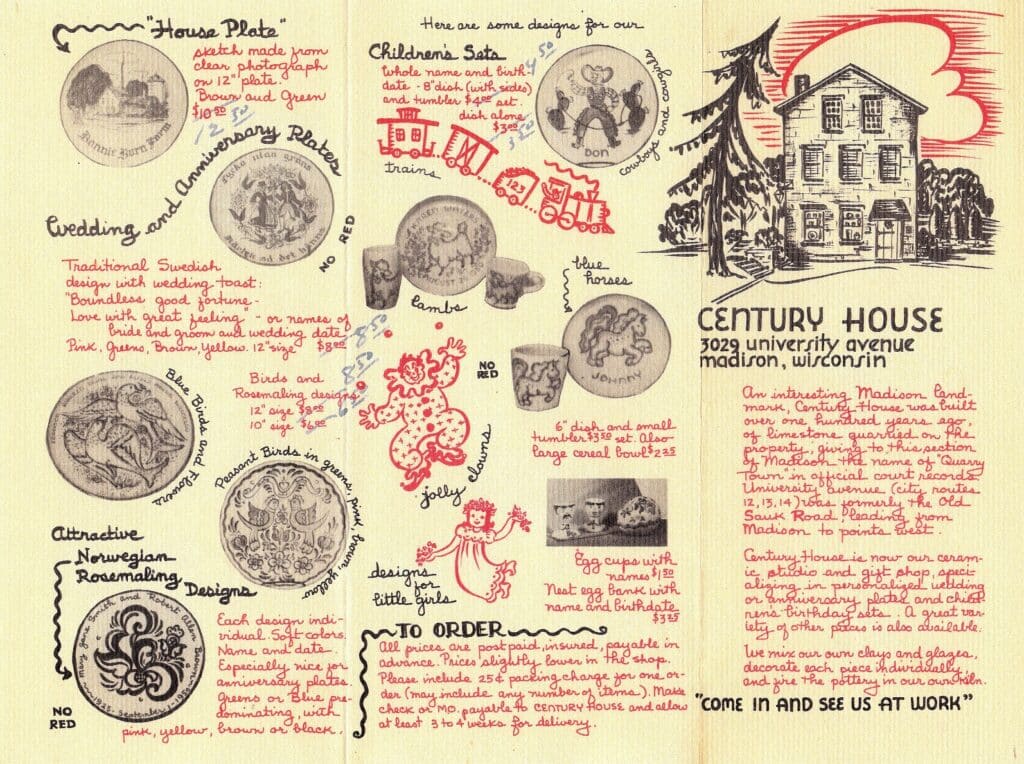 "House Plate"
sketch made from
clear photograph
on 12" plate.
Brown and Green
$10.50
12 50
Bonnie Burn Farm
Wedding and Anniversary Plates
NO RED
Traditional Swedish
design with wedding toast:
"Boundless good fortune -
Love with great feeling" - or names of
bride and groom and wedding date
Pink, Greens, Brown, Yellow. 12" size $8.00
8.50
Blue Birds and Flowers
Birds and
Rosemaling designs
12" size $8.00
10" size $6.00
8.50
Peasant Birds in greens, pink, brown, yellow
Attractive
Norwegian
Rosemaling
Designs
Mary Jane Smith and Robert Allen Brown
September 1-
NO
RED
Each design indi-
vidual. Soft colors.
Name and date.
Especially nice for
anniversary plates.
Greens or Blue pre-
dominating, with
pink, yellow, brown or black.
Here are some designs for our
Children's Sets
Whole name and birth-
date - 8" dish (with sides)
and tumbler $4.00 set.
dish alone
$3.00
4 50
3 50
DON
cowboys and cowgirls
trains
123
lambs
blue
horses
JOHNNY
NO
RED
6" dish and small
tumbler $3.50 set. Also
large cereal bowl $2.25
jolly clowns
designs
for
little girls
Egg cups with
names $1.50
Nest egg bank with
name and birthdate
$3.25
TO ORDER
All prices are postpaid, insured, payable in
advance. Prices slightly lower in the shop.
Please include 25¢ packing charge for one or-
der (may include any number of items). Make
check or M.O. payable to CENTURY HOUSE and allow
at least 3 to 4 weeks for delivery.
CENTURY HOUSE
3029 university avenue
madison, wisconsin
An interesting Madison land-
mark, Century House was built
over one hundred years ago,
of limestone quarried on the
property, giving to this section
of Madison the name of "Quarry
Town" in official court records.
University avenue (city routes
12, 13, 14) was formerly the Old
Sauk Road, leading from
Madison to points west.
Century House is now our ceram-
ic studio and gift shop, speci-
alizing in personalized wedding
or anniversary plates and child-
ren's birthday sets. A great var-
iety of other pieces is also available.
We mix our own clays and glazes,
decorate each piece individually,
and fire the pottery in our own kiln.
"COME IN AND SEE US AT WORK"